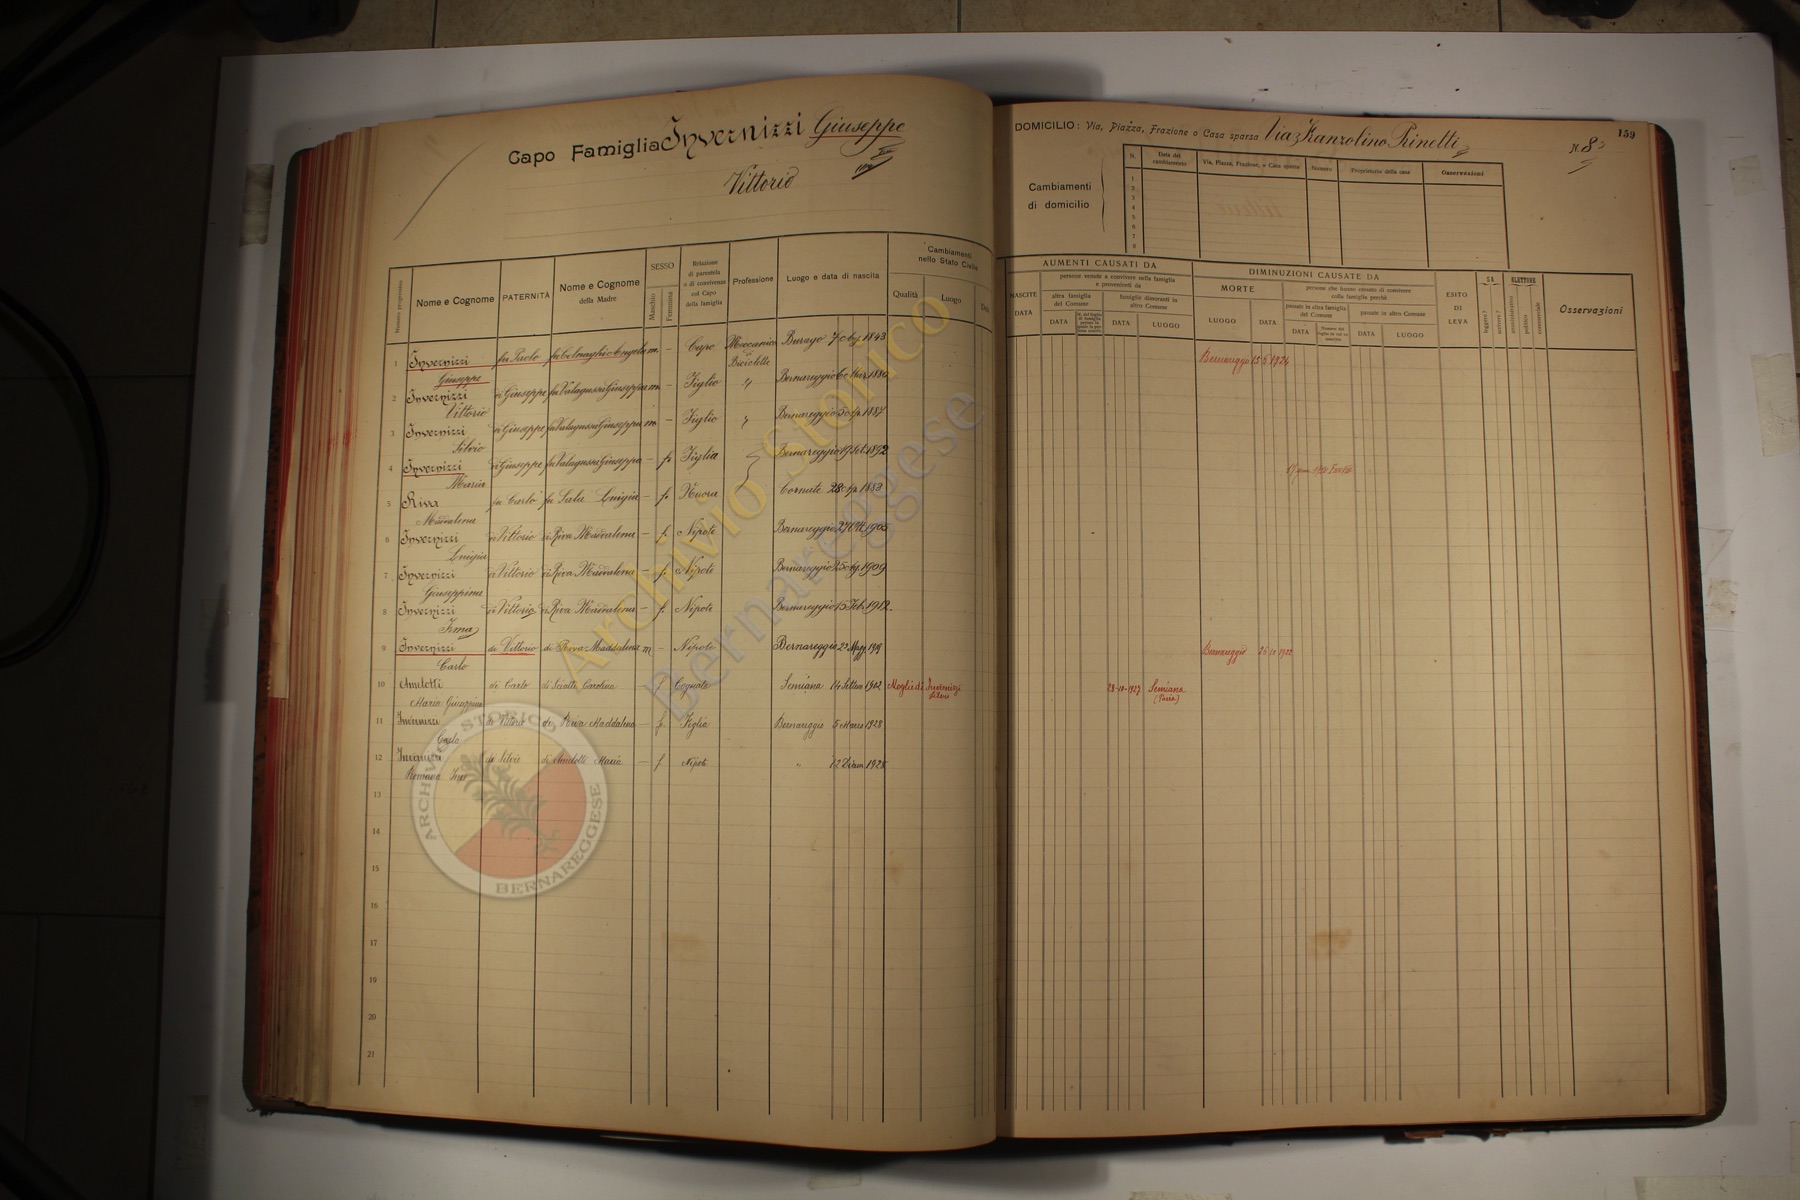 Capo Famiglia Invernizzi Giuseppe
Vittorio
Numero progressivo
Nome e Cognome
PATERNITÀ
Nome e Cognome
della Madre
SESSO
Maschio
Femmina
Relazione
di parentela
o di convivenza
col Capo
della famiglia
Professione
Luogo e data di nascita
Cambiamenti
nello Stato Civile
Qualità
Luogo
Data
1 Invernizzi fu Paolo fu Angela m. – Capo Meccanico Burago 7 1843
Giuseppe Biciclette
2 Invernizzi di Giuseppe fu Valagussa Giuseppa m – Figlio " Bernareggio 6 1880
Vittorio
3 Invernizzi di Giuseppe fu Valagussa Giuseppa m – Figlio " Bernareggio 5 1887
Silvio
4 Invernizzi di Giuseppe fu Valagussa Giuseppa – f. Figlia Bernareggio 19 Set. 1892
Maria
5 Riva fu Carlo fu Sala Luigia – f. Nuora Cornate 28 1883
Maddalena
6 Invernizzi di Vittorio di Riva Maddalena – f. Nipote Bernareggio 27 1905
Luigia
7 Invernizzi di Vittorio di Riva Maddalena – f. Nipote Bernareggio 25 1909
Giuseppina
8 Invernizzi di Vittorio di Riva Maddalena – f. Nipote Bernareggio 15 Feb. 1912.
Irma
9 Invernizzi di Vittorio di Riva Maddalena m – Nipote Bernareggio 22 Magg. 1919
Carlo
10 Amilotti di Carlo di Carolina – f Cognata Semiana 14 1902 Moglie di Invernizzi
Maria Giuseppina Silvio
11 Invernizzi di Vittorio di Riva Maddalena – f. Figlia Bernareggio 5 Marzo 1928
Carla
12 Invernizzi di Silvio di Amilotti Maria – f Nipote " 12 1928
Romana
13
14
15
16
17
19
20
21
DOMICILIO: Via, Piazza, Frazione o Casa sparsa Via Prinetti N. 8
159
Cambiamenti
di domicilio
N.
Data del
cambiamento
Via, Piazza, Frazione, o Casa sparsa
Numero
Proprietario della casa
Osservazioni
1
2
3
4
5
6
7
8
AUMENTI CAUSATI DA
NASCITE
DATA
persone venute a convivere nella famiglia
e provenienti da
altra famiglia
del Comune
DATA
famiglie dimoranti in
altro Comune
DATA
LUOGO
DIMINUZIONI CAUSATE DA
MORTE
LUOGO
DATA
persone che hanno cessato di convivere
colla famiglia perchè
passate in altra famiglia
del Comune
DATA
passate in altro Comune
DATA
LUOGO
ESITO
DI
LEVA
SA
leggere?
scrivere?
ELETTORE
amministrativo
politico
commerciale
Osservazioni
Bernareggio 15 6 1924
Bernareggio 26 11 1922
28-10-1927 Semiana
(Pavia)
Archivio Storico
Bernareggese
ARCHIVIO STORICO
BERNAREGGESE